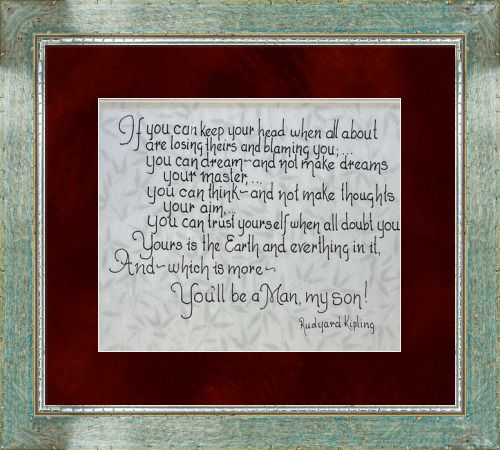 If you can keep your head when all about
are losing theirs and blaming you;...
you can dream~and not make dreams
your master,...
you can think~and not make thoughts
your aim,...
you can trust yourself when all doubt you
Yours is the Earth and everthing in it,
And~which is more~
You'll be a Man, my son!
Rudyard Kipling